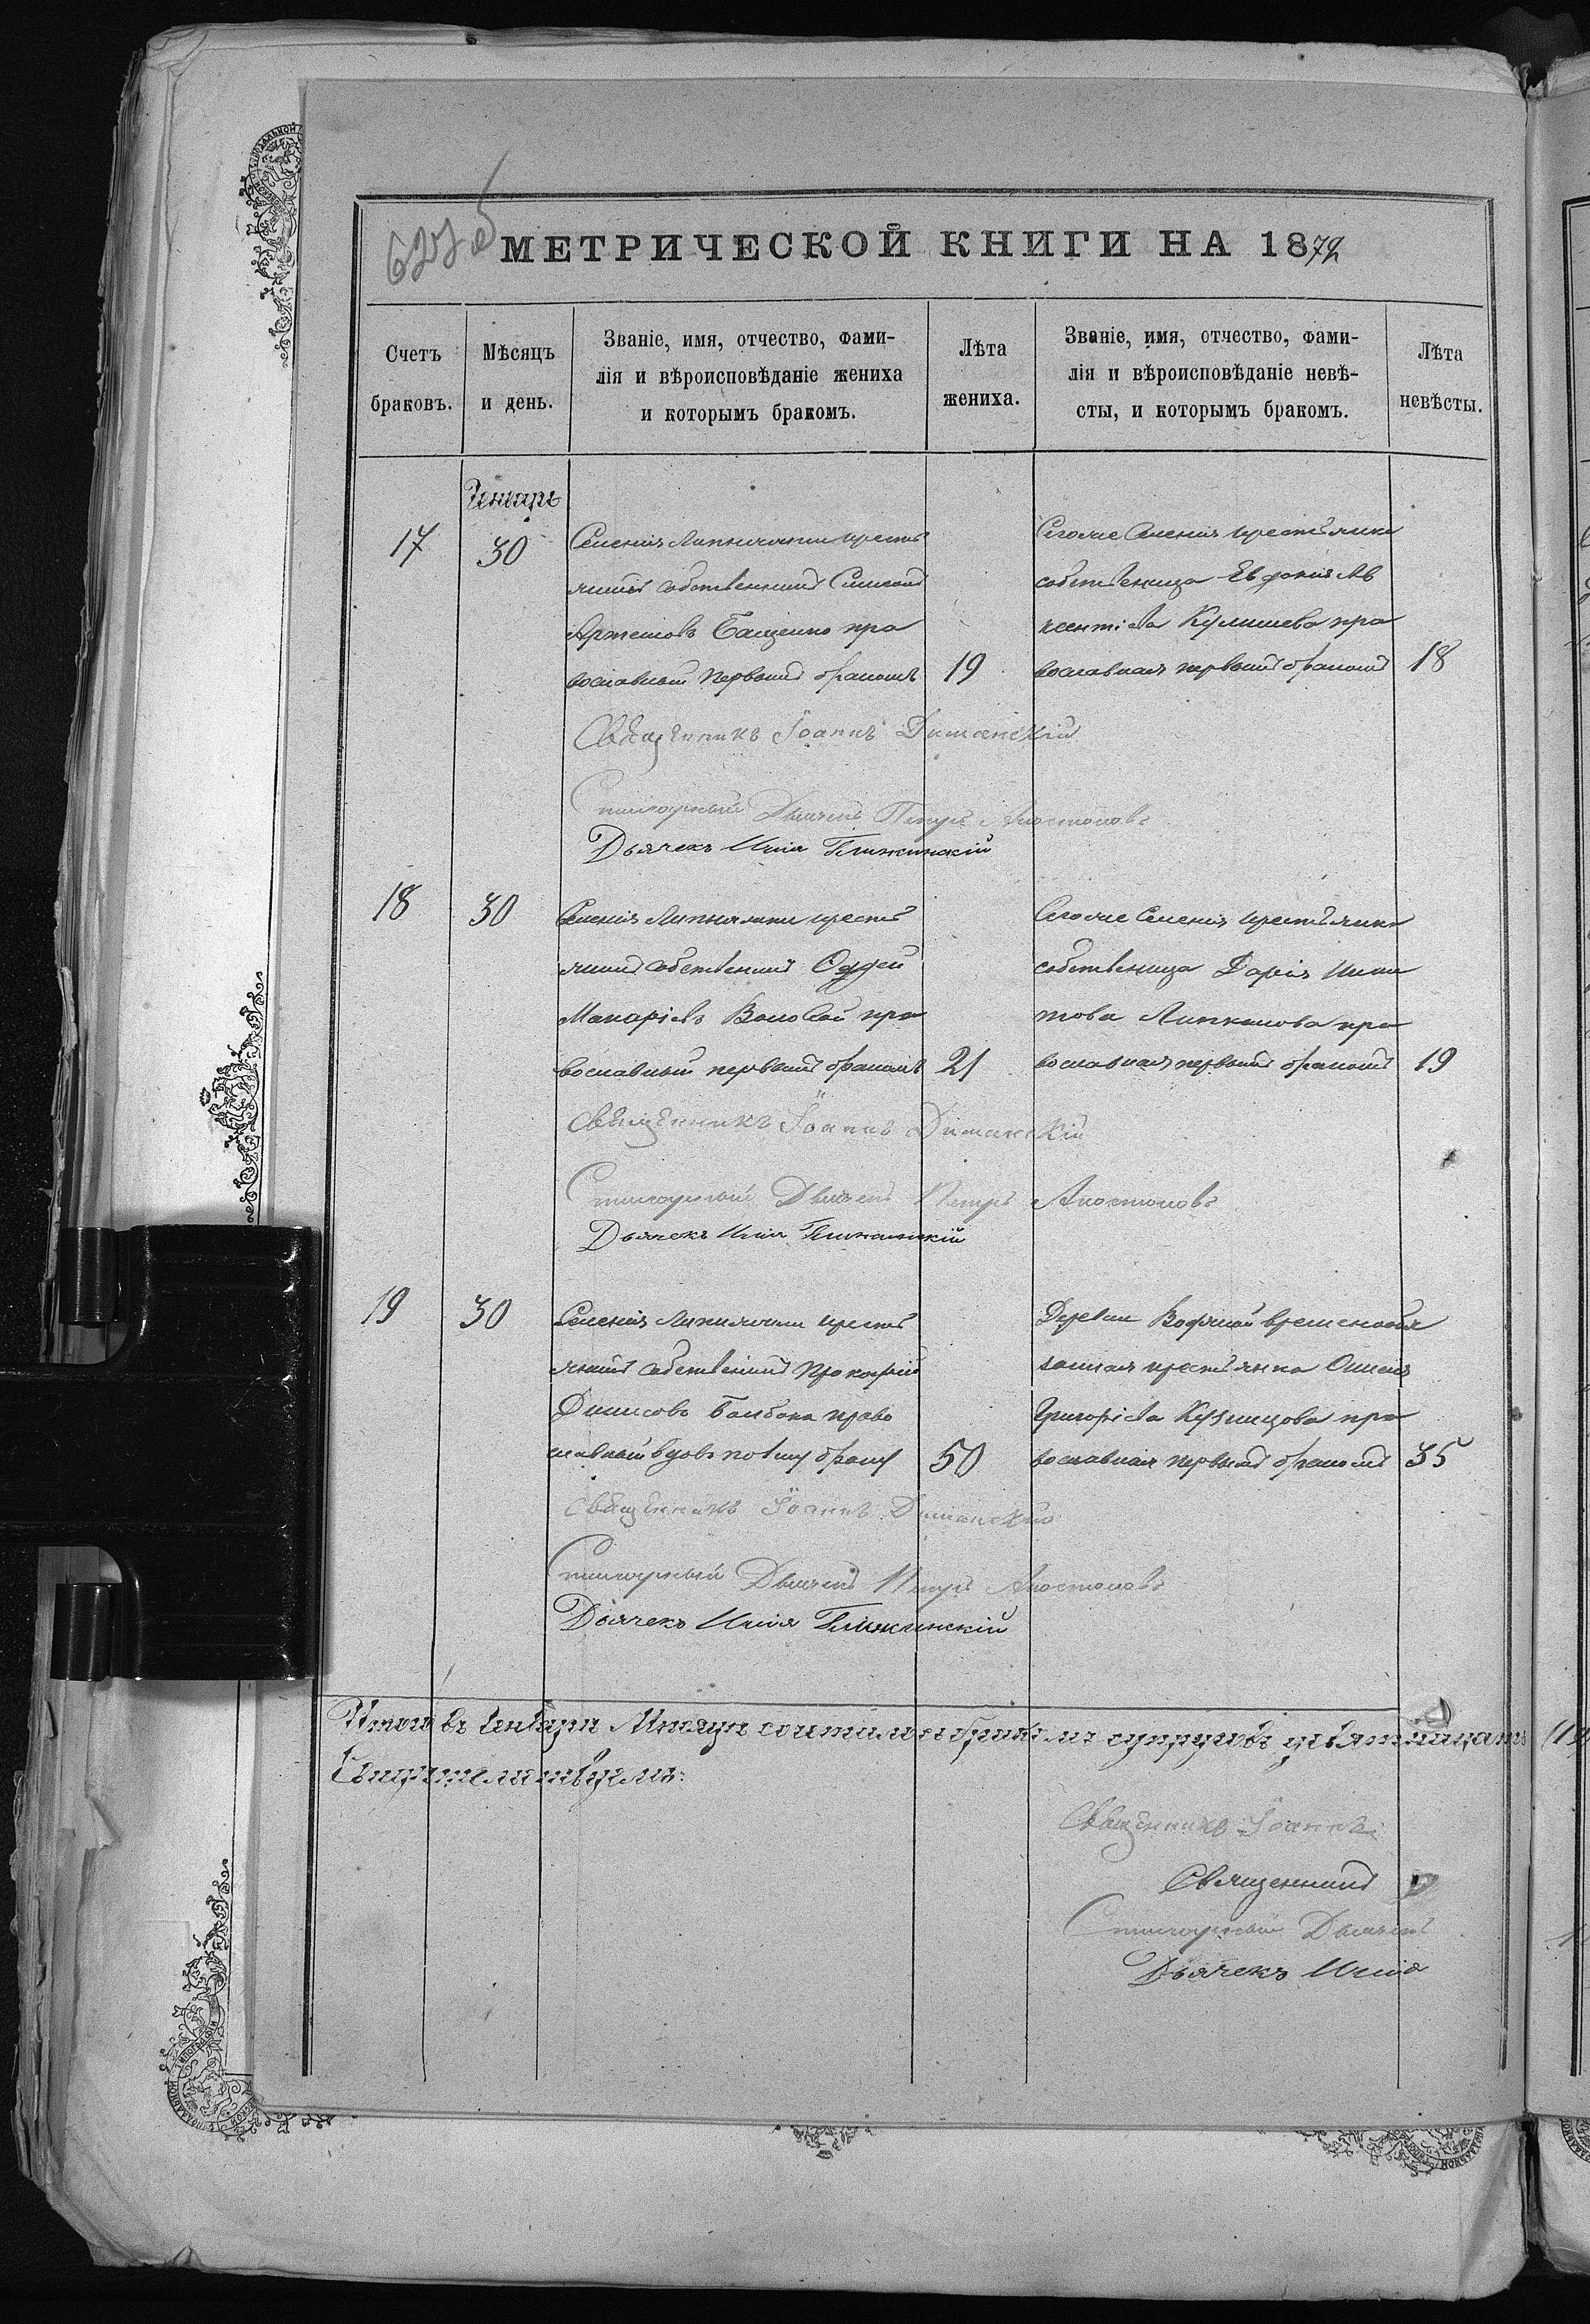 МЕТРИЧЕСКОЙ КНИГИ НА 1872
Счетъ браковъ.
Мѣсяцъ и день.
Званіе, имя, отчество, фами-
лія и вѣроисповѣданіе жениха
и которымъ бракомъ.
Лѣта жениха.
Званіе, имя, отчество, фами-
лія и вѣроисповѣданіе невѣ-
сты, и которымъ бракомъ.
Лѣта невѣсты.
Генварь
17
30
Селенія кресть
янинъ собственникъ
Артемовъ Бащенко пра
вославный первымъ бракомъ
19
Сегоже Селенія крестьянка
собственница Евфимія Ав
ксентіева Кулишева пра
вославная первымъ бракомъ
18
Священникъ Іоаннъ Диманскій
Стихарный Дьячекъ Петръ Апостоловъ
Дьячекъ Илія
18
30
Селенія кресть
янинъ собственникъ
Макаріевъ Воловой пра
вославный первымъ бракомъ
21
Сегоже Селенія крестьянка
собственница Дарія Ники
това пра
вославная первымъ бракомъ
19
Священникъ Іоаннъ Диманскій
Стихарный Дьячекъ Петръ Апостоловъ
Дьячекъ Илія
19
30
Селенія кресть
янинъ собственникъ Прокофій
Денисовъ право
славный вдовъ по 1му браку
50
Деревни временнообя
занная крестьянка
Григоріева Кузнецова пра
вославная первымъ бракомъ
35
Священникъ Іоаннъ Диманскій
Стихарный Дьячекъ Петръ Апостоловъ
Дьячекъ Илія
Итого въ Январѣ Мѣсяцѣ сочеталось бракомъ супруговъ девятнадцать
Священникъ Іоаннъ
Священникъ
Стихарный Дьячекъ
Дьячекъ Илія